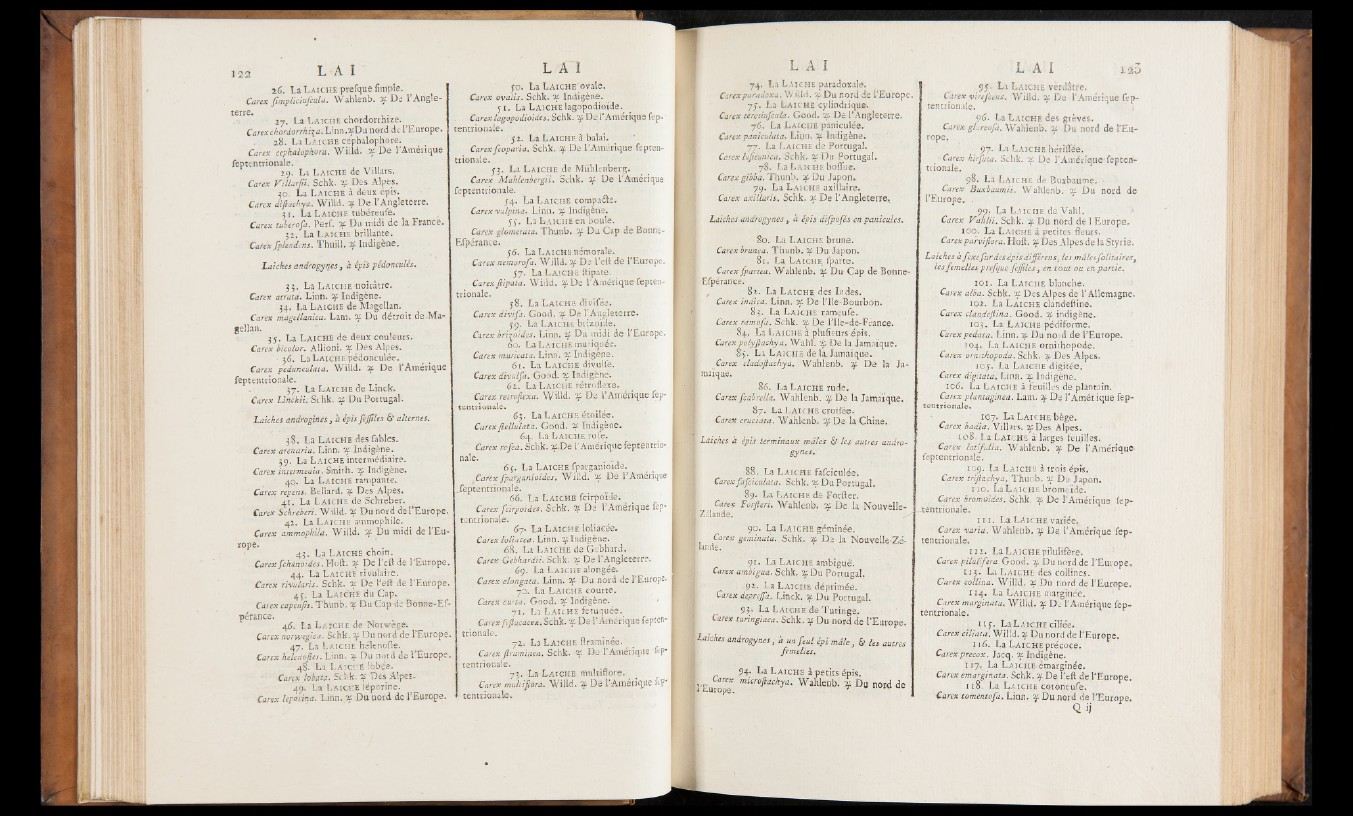 122 LAI
26. La LAICHE presque simple.
Carex simpliciuscula. Wahlenb. ♃ De l'Angle-
terre.
27. La LAICHE chordorrhize.
Carex chordorrhiza. Linn. ♃ Du nord de l'Europe.
28. La LAICHE céphalophore.
Carex cephalophora. Willd. ♃ De l'Amérique
septentrionale.
29. La LAICHE de Villars.
Carex Villarsii. Schk. ♃ Des Alpes.
30. La LAICHE à deux épis.
Carex distachya. Willd. ♃ De l'Angleterre.
31. La LAICHE tubéreuse.
Carex tuberosa. Pers. ♃ Du midi de la France.
32. La LAICHE brillante.
Carex splendens. Thuill. ♃ Indigène.
Laiches androgynes, à épis pédonculés.
33. La LAICHE noirâtre.
Carex atrata. Linn. ♃ Indigène.
34. La LAICHE de Magellan.
Carex magellanica. Lam. ♃ Du détroit de Ma-
gellan.
35. La LAICHE de deux couleurs.
Carex bicolor. Allioni. ♃ Des Alpes.
36. La LAICHE pédonculée.
Carex pedunculata. Willd. ♃ De l'Amérique
septentrionale.
37. La LAICHE de Linck.
Carex Linckii. Schk. ♃ Du Portugal.
Laiches androgines, à épis sessiles & alternes.
38. La LAICHE des sables.
Carex arenaria. Linn. ♃ Indigène.
39. La LAICHE intermédiaire.
Carex intermedia. Smith. ♃ Indigène.
40. La LAICHE rampante.
Carex repens. Bellard. ♃ Des Alpes.
41. La LAICHE de Schreber.
Carex Schreberi. Willd. ♃ Du nord de l'Europe.
42. La LAICHE ammophile.
Carex ammophila. Willd. ♃ Du midi de l'Eu-
rope.
43. La LAICHE choin.
Carex schœnoides. Host. ♃ De l'est de l'Europe.
44. La LAICHE rivulaire.
Carex rivularis. Schk. ♃ De l'est de l'Europe.
45. La LAICHE du Cap.
Carex capensis. Thunb. ♃ Du Cap de Bonne-Es-
pérance.
46. La LAICHE de Norwège.
Carex norwegica. Schk. ♃ Du nord de l'Europe.
47. La LAICHE hélenoste.
Carex helenostes. Linn. ♃ Du nord de l'Europe.
48. La LAICHE lobée.
Carex lobata. Schk. ♃ Des Alpes.
49. La LAICHE léporine.
Carex leporina. Linn. ♃ Du nord de l'Europe.
LAI
50. La LAICHE ovale.
Carex ovalis. Schk. ♃ Indigène.
51. La LAICHE lagopodioïde.
Carex lagopodioides. Schk. ♃ De l'Amérique sep-
tentrionale.
52. La LAICHE à balai.
Carex scoparia. Schk. ♃ De l'Amérique septen-
trionale.
53. La LAICHE de Mühlenberg.
Carex Muhlenbergii. Schk. ♃ De l'Amérique
septentrionale.
54. La LAICHE compacte.
Carex vulpina. Linn. ♃ Indigène.
55. La LAICHE en boule.
Carex glomerata. Thunb. ♃ Du Cap de Bonne-
Espérance.
56. La LAICHE némorale.
Carex nemorosa. Willd. ♃ De l'est de l'Europe.
57. La LAICHE stipate.
Carex stipata. Willd. ♃ De l'Amérique septen-
trionale.
58. La LAICHE divisée.
Carex divisa. Good. ♃ De l'Angleterre.
59. La LAICHE brizoïde.
Carex brizoides. Linn. ♃ Du midi de l'Europe.
60. La LAICHE muriquée.
Carex muricata. Linn. ♃ Indigène.
61. La LAICHE divulse.
Carex divulsa. Good. ♃ Indigène.
62. La LAICHE rétroflexe.
Carex retroflexa. Willd. ♃ De l'Amérique sep-
tentrionale.
63. La LAICHE étoilée.
Carex stellulata. Good. ♃ Indigène.
64. La LAICHE rose.
Carex rosea. Schk. ♃ De l'Amérique septentrio-
nale.
65. La LAICHE sparganioïde.
Carex sparganioides. Willd. ♃ De l'Amérique
septentrionale.
66. La LAICHE scirpoïde.
Carex scirpoides. Schk. ♃ De l'Amérique sep-
tentrionale.
67. La LAICHE loliacée.
Carex loliacea. Linn. ♃ Indigène.
68. La LAICHE de Gebhard.
Carex Gebhardii. Schk. ♃ De l'Angleterre.
69. La LAICHE alongée.
Carex elongata. Linn. ♃ Du nord de l'Europe.
70. La LAICHE courte.
Carex curta. Good. ♃ Indigène.
71. La LAICHE fétuquée.
Carex festucacea. Schk. ♃ De l'Amérique septen-
trionale.
72. La LAICHE straminée.
Carex straminea. Schk. ♃ De l'Amérique sep-
tentrionale.
73. La LAICHE multiflore.
Carex multiflora. Willd. ♃ De l'Amérique sep-
tentrionale.
LAI
74. La LAICHE paradoxale.
Carex paradoxa. Willd. ♃ Du nord de l'Europe.
75. La LAICHE cylindrique.
Carex teretiuscula. Good. ♃ De l'Angleterre.
76. La LAICHE paniculée.
Carex paniculata. Linn. ♃ Indigène.
77. La LAICHE de Portugal.
Carex lusitanica. Schk. ♃ Du Portugal.
78. La LAICHE bossue.
Carex gibba. Thunb. ♃ Du Japon.
79. La LAICHE axillaire.
Carex axillaris. Schk. ♃ De l'Angleterre.
Laiches androgynes, à épis disposés en panicules.
80. La LAICHE brune.
Carex brunea. Thunb. ♃ Du Japon.
81. La LAICHE sparte.
Carex spartea. Wahlenb. ♃ Du Cap de Bonne-
Espérance.
82. La LAICHE des Indes.
Carex indica. Linn. ♃ De l'Ile-Bourbon.
83. La LAICHE rameuse.
Carex ramosa. Schk. ♃ De l'Ile-de-France.
84. La LAICHE à plusieurs épis.
Carex polystachya. Wahl. ♃ De la Jamaïque.
85. La LAICHE de la Jamaïque.
Carex cladostachya. Wahlenb. ♃ De la Ja-
maïque.
86. La LAICHE rude.
Carex scabrella. Wahlenb. ♃ De la Jamaïque.
87. La LAICHE croisée.
Carex cruciata. Wahlenb. ♃ De la Chine.
Laiches à épis terminaux mâles & les autres andro-
gynes.
88. La LAICHE fasciculée.
Carex fasciculata. Schk. ♃ Du Portugal.
89. La LAICHE de Forster.
Carex Forsteri. Wahlenb. ♃ De la Nouvelle-
Zélande.
90. La LAICHE géminée.
Carex geminata. Schk. ♃ De la Nouvelle-Zé-
lande.
91. La LAICHE ambiguë.
Carex ambigua. Schk. ♃ Du Portugal.
92. La LAICHE déprimée.
Carex depressa. Linck. ♃ Du Portugal.
93. La LAICHE de Turinge.
Carex turingiaca. Schk. ♃ Du nord de l'Europe.
Laiches androgynes, à un seul épi mâle, & les autres
femelles.
94. La LAICHE à petits épis.
Carex microstachya. Wahlenb. ♃ Du nord de
l'Europe.
LAI 123
95. La LAICHE verdâtre.
Carex virescens. Willd. ♃ De l'Amérique sep-
tentrionale.
96. La LAICHE des grèves.
Carex glareosa. Wahlenb. ♃ Du nord de l'Eu-
rope.
97. La LAICHE hérissée.
Carex hirsuta. Schk. ♃ De l'Amérique septen-
trionale.
98. La LAICHE de Buxbaume.
Carex Buxbaumii. Wahlenb. ♃ Du nord de
l'Europe.
99. La LAICHE de Vahl.
Carex Vahlii. Schk. ♃ Du nord de l'Europe.
100. La LAICHE à petites fleurs.
Carex parviflora. Host. ♃ Des Alpes de la Styrie.
Laiches à sexe sur des épis différens, les mâles solitaires,
les femelles presque sessiles, en tout ou en partie.
101. La LAICHE blanche.
Carex alba. Schk. ♃ Des Alpes de l'Allemagne.
102. La LAICHE clandestine.
Carex clandestina. Good. ♃ indigène.
103. La LAICHE pédiforme.
Carex pedata. Linn. ♃ Du nord de l'Europe.
104. La LAICHE ornithopode.
Carex ornithopoda. Schk. ♃ Des Alpes.
105. La LAICHE digitée.
Carex digitata. Linn. ♃ Indigène.
106. La LAICHE à feuilles de plantain.
Carex plantaginea. Lam. ♃ De l'Amérique sep-
tentrionale.
107. La LAICHE bège.
Carex badia. Villars. ♃ Des Alpes.
108. La LAICHE à larges feuilles.
Carex latifolia. Wahlenb. ♃ De l'Amérique
septentrionale.
109. La LAICHE à trois épis.
Carex tristachya. Thunb. ♃ Du Japon.
110. La LAICHE bromoïde.
Carex bromoides. Schk. ♃ De l'Amérique sep-
tentrionale.
111. La LAICHE variée.
Carex varia. Wahlenb. ♃ De l'Amérique sep-
tentrionale.
112. La LAICHE pilulifère.
Carex pilulifera. Good. ♃ Du nord de l'Europe.
113. La LAICHE des collines.
Carex collina. Willd. ♃ Du nord de l'Europe.
114. La LAICHE marginée.
Carex marginata. Willd. ♃ De l'Amérique sep-
tentrionale.
115. La LAICHE ciliée.
Carex ciliata. Willd. ♃ Du nord de l'Europe.
116. La LAICHE précoce.
Carex precox. Jacq. ♃ Indigène.
117. La LAICHE émarginée.
Carex emarginata. Schk. ♃ De l'est de l'Europe.
118. La LAICHE cotoneuse.
Carex tomentosa. Linn. ♃ Du nord de l'Europe.
Q ij